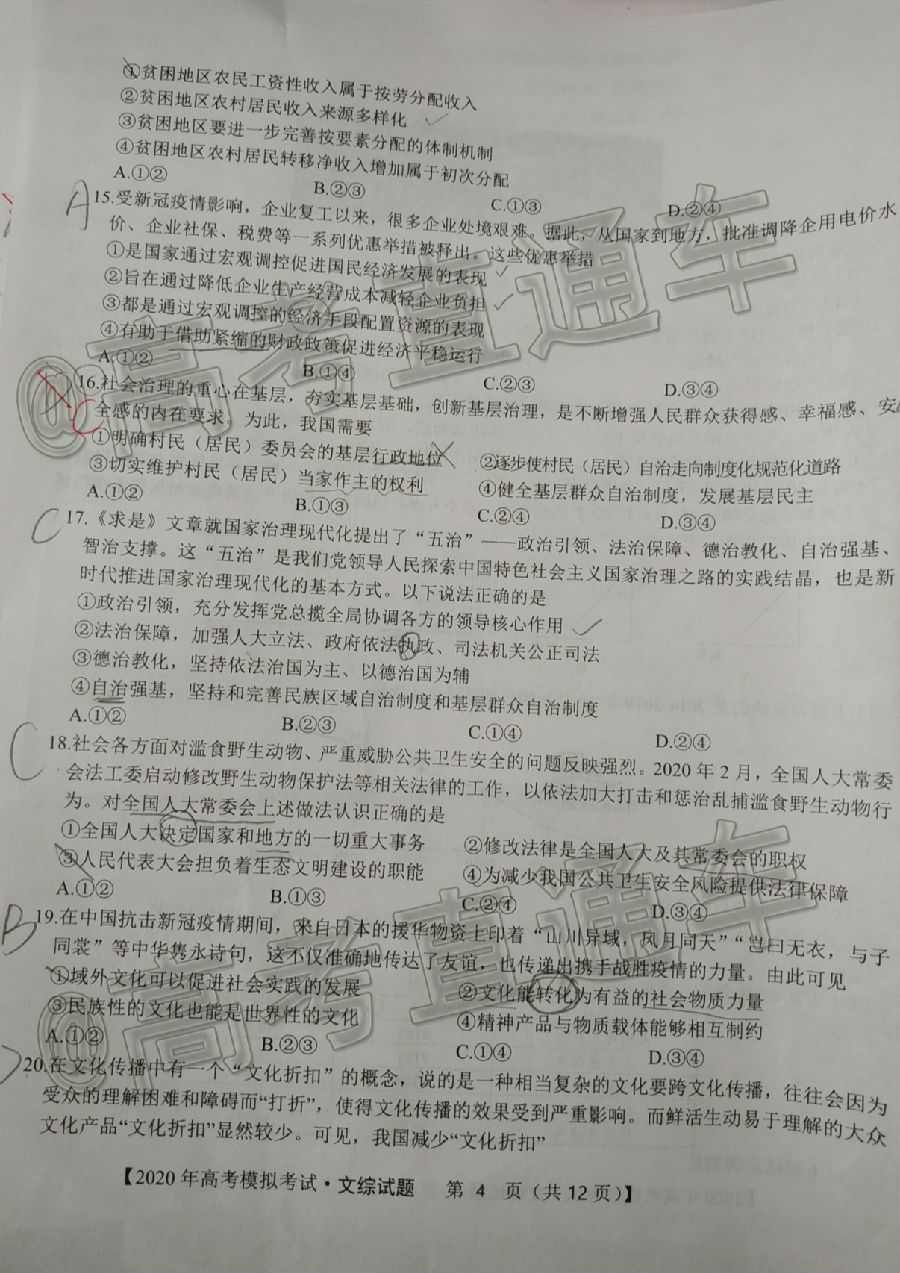 ①贫困地区农民工资性收入属于按劳分配收入
②贫困地区农村居民收入来源多样化
③贫困地区要进一步完善按要素分配的体制机制
④贫困地区农村居民转移净收入增加属于初次分配
A.①② B.②③ C.①③ D.②④
A
15.受新冠疫情影响，企业复工以来，很多企业处境艰难。据此，从国家到地方，批准调降企用电价水
价、企业社保、税费等一系列优惠举措被释出。这些优惠举措
①是国家通过宏观调控促进国民经济发展的表现
②旨在通过降低企业生产经营成本减轻企业负担
③都是通过宏观调控的经济手段配置资源的表现
④有助于借助紧缩的财政政策促进经济平稳运行
A.①② B.①④ C.②③ D.③④
C
16.社会治理的重心在基层，夯实基层基础，创新基层治理，是不断增强人民群众获得感、幸福感、安
全感的内在要求 为此，我国需要
①明确村民（居民）委员会的基层行政地位 ②逐步使村民（居民）自治走向制度化规范化道路
③切实维护村民（居民）当家作主的权利 ④健全基层群众自治制度，发展基层民主
A.①② B.①③ C.②④ D.③④
C
17.《求是》文章就国家治理现代化提出了“五治”——政治引领、法治保障、德治教化、自治强基、
智治支撑。这“五治”是我们党领导人民探索中国特色社会主义国家治理之路的实践结晶，也是新
时代推进国家治理现代化的基本方式。以下说法正确的是
①政治引领，充分发挥党总揽全局协调各方的领导核心作用
②法治保障，加强人大立法、政府依法执政、司法机关公正司法
③德治教化，坚持依法治国为主、以德治国为辅
④自治强基，坚持和完善民族区域自治制度和基层群众自治制度
A.①② B.②③ C.①④ D.②④
C
18.社会各方面对滥食野生动物、严重威胁公共卫生安全的问题反映强烈。2020年2月，全国人大常委
会法工委启动修改野生动物保护法等相关法律的工作，以依法加大打击和惩治乱捕滥食野生动物行
为。对全国人大常委会上述做法认识正确的是
①全国人大决定国家和地方的一切重大事务 ②修改法律是全国人大及其常委会的职权
③人民代表大会担负着生态文明建设的职能 ④为减少我国公共卫生安全风险提供法律保障
A.①② B.①③ C.②④ D.③④
B
19.在中国抗击新冠疫情期间，来自日本的援华物资上印着“山川异域，风月同天”“岂曰无衣，与子
同裳”等中华隽永诗句，这不仅准确地传达了友谊，也传递出携手战胜疫情的力量。由此可见
①域外文化可以促进社会实践的发展 ②文化能转化为有益的社会物质力量
③民族性的文化也能是世界性的文化 ④精神产品与物质载体能够相互制约
A.①② B.②③ C.①④ D.③④
20.在文化传播中有一个“文化折扣”的概念，说的是一种相当复杂的文化要跨文化传播，往往会因为
受众的理解困难和障碍而“打折”，使得文化传播的效果受到严重影响。而鲜活生动易于理解的大众
文化产品“文化折扣”显然较少。可见，我国减少“文化折扣”
【2020年高考模拟考试·文综试题 第 4 页（共12页）】
@高考直通车
@高考直通车